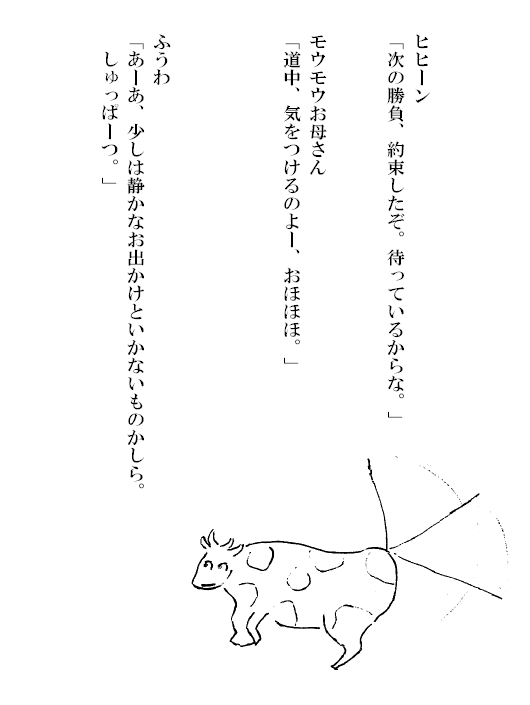 ヒヒーン
「次の勝負、約束したぞ。待っているからな。」
モウモウお母さん
「道中、気をつけるのよー、おほほほ。」
ふうわ
「あーあ、少しは静かなお出かけといかないものかしら。
しゅっぱーつ。」